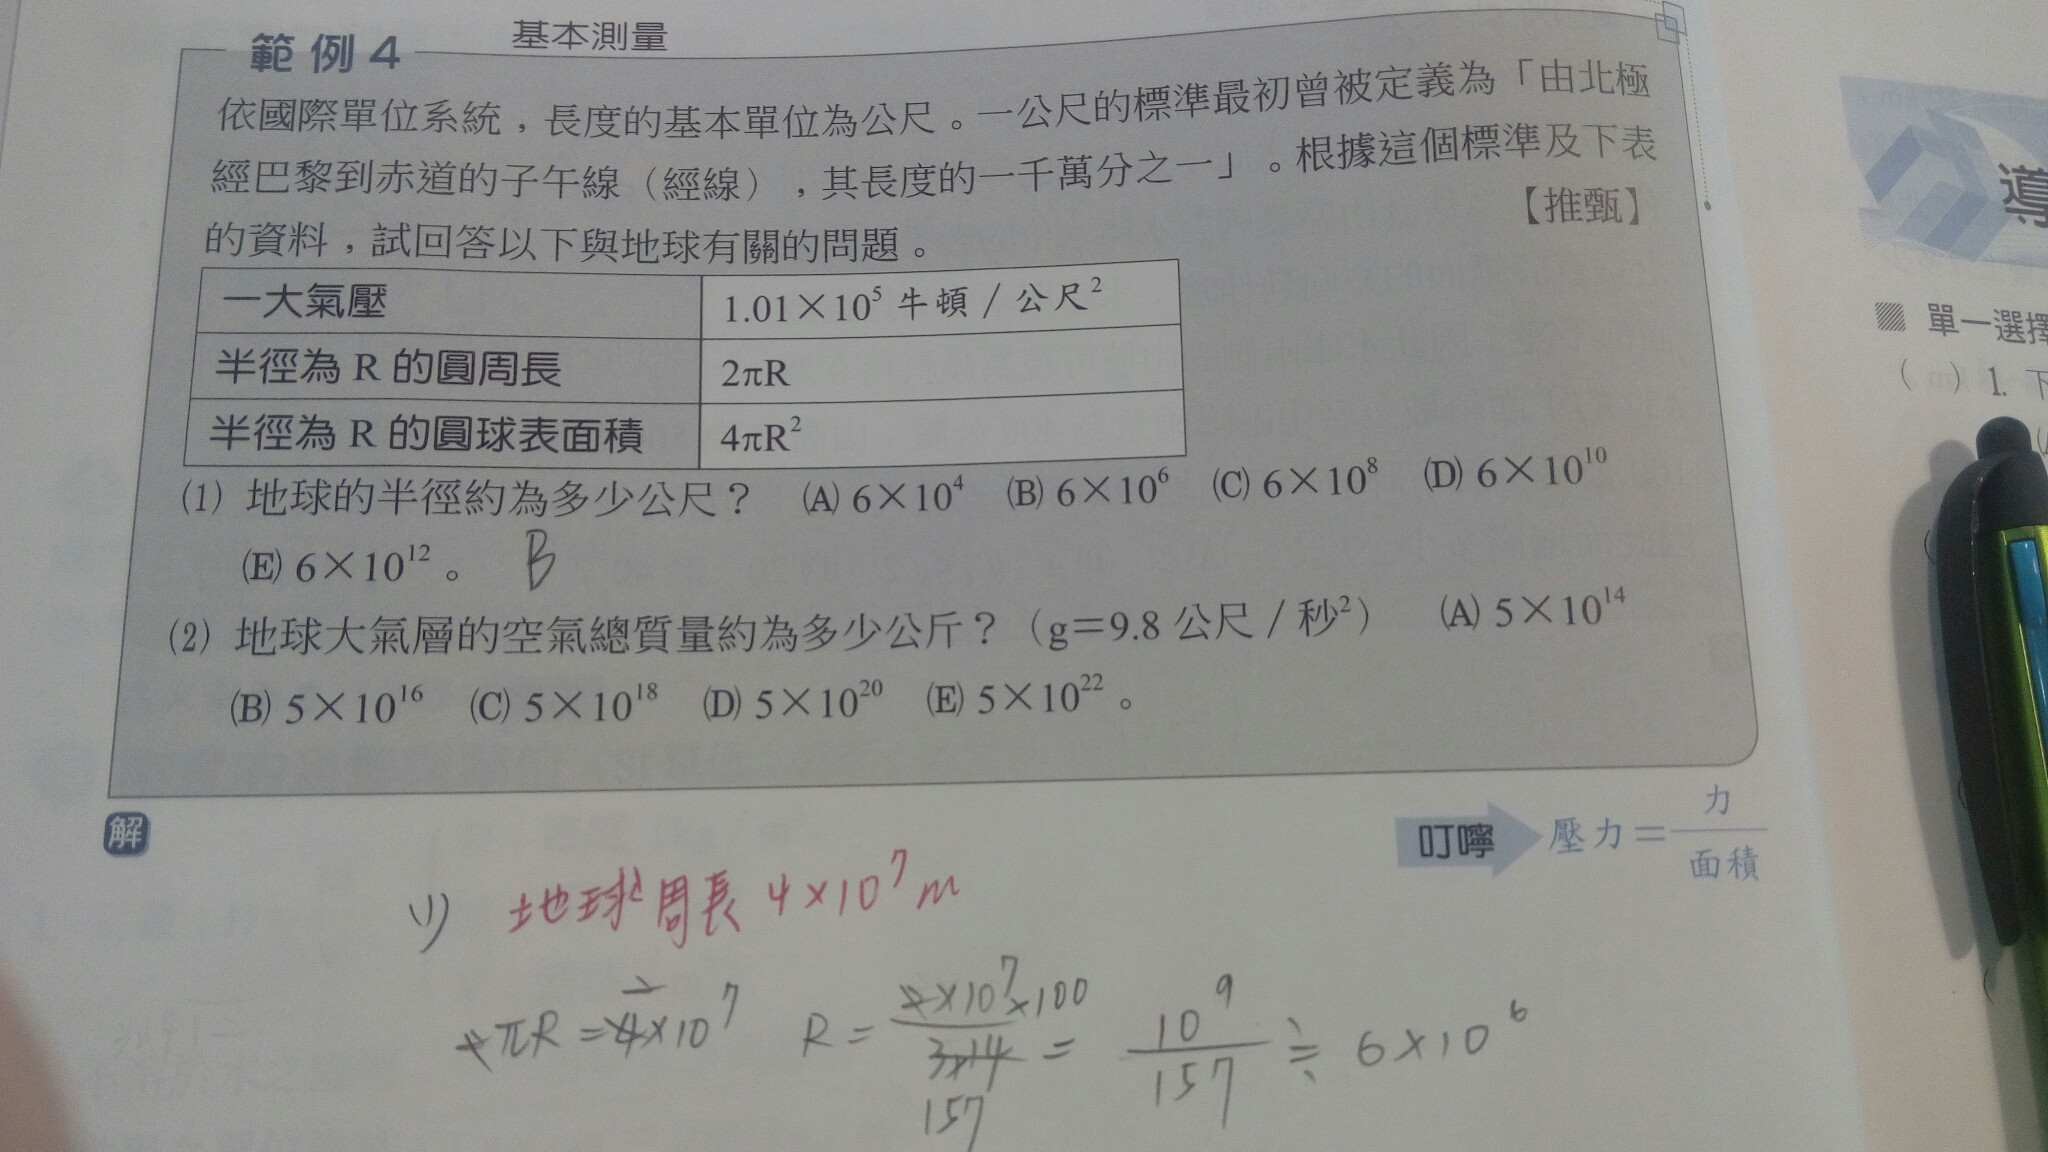 範例4 基本測量
依國際單位系統，長度的基本單位為公尺。一公尺的標準最初曾被定義為「由北極
經巴黎到赤道的子午線（經線），其長度的一千萬分之一」。根據這個標準及下表
的資料，試回答以下與地球有關的問題。 【推甄】
一大氣壓 1.01×10⁵ 牛頓／公尺²
半徑為 R 的圓周長 2πR
半徑為 R 的圓球表面積 4πR²
(1) 地球的半徑約為多少公尺？ (A) 6×10⁴ (B) 6×10⁶ (C) 6×10⁸ (D) 6×10¹⁰
(E) 6×10¹²。 B
(2) 地球大氣層的空氣總質量約為多少公斤？（g＝9.8 公尺／秒²） (A) 5×10¹⁴
(B) 5×10¹⁶ (C) 5×10¹⁸ (D) 5×10²⁰ (E) 5×10²²。
解
叮嚀 壓力＝力/面積
(1) 地球周長 4×10⁷ m
2πR = 4×10⁷ R = 2×10⁷×100 / 314 = 10⁹/157 ≒ 6×10⁶
2
157
導
單一選擇
( ) 1. 下